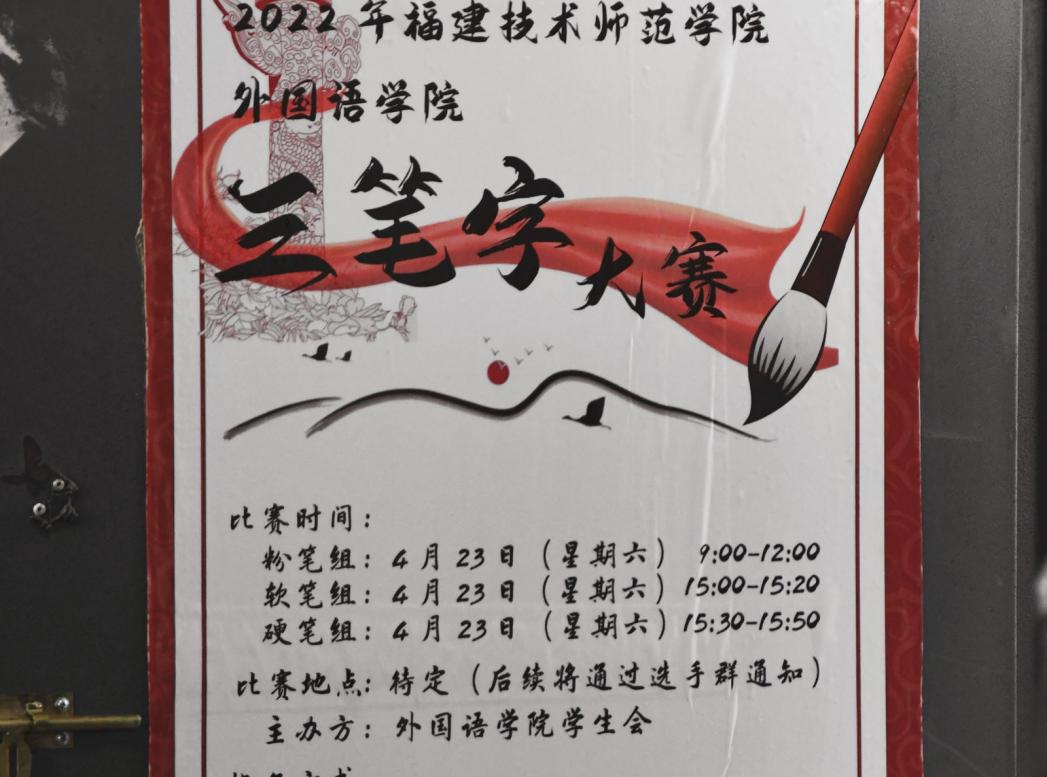 2022年福建技术师范学院
外国语学院
三笔字大赛
比赛时间：
粉笔组：4月23日（星期六） 9:00-12:00
软笔组：4月23日（星期六）15:00-15:20
硬笔组：4月23日（星期六）15:30-15:50
比赛地点：待定（后续将通过选手群通知）
主办方：外国语学院学生会